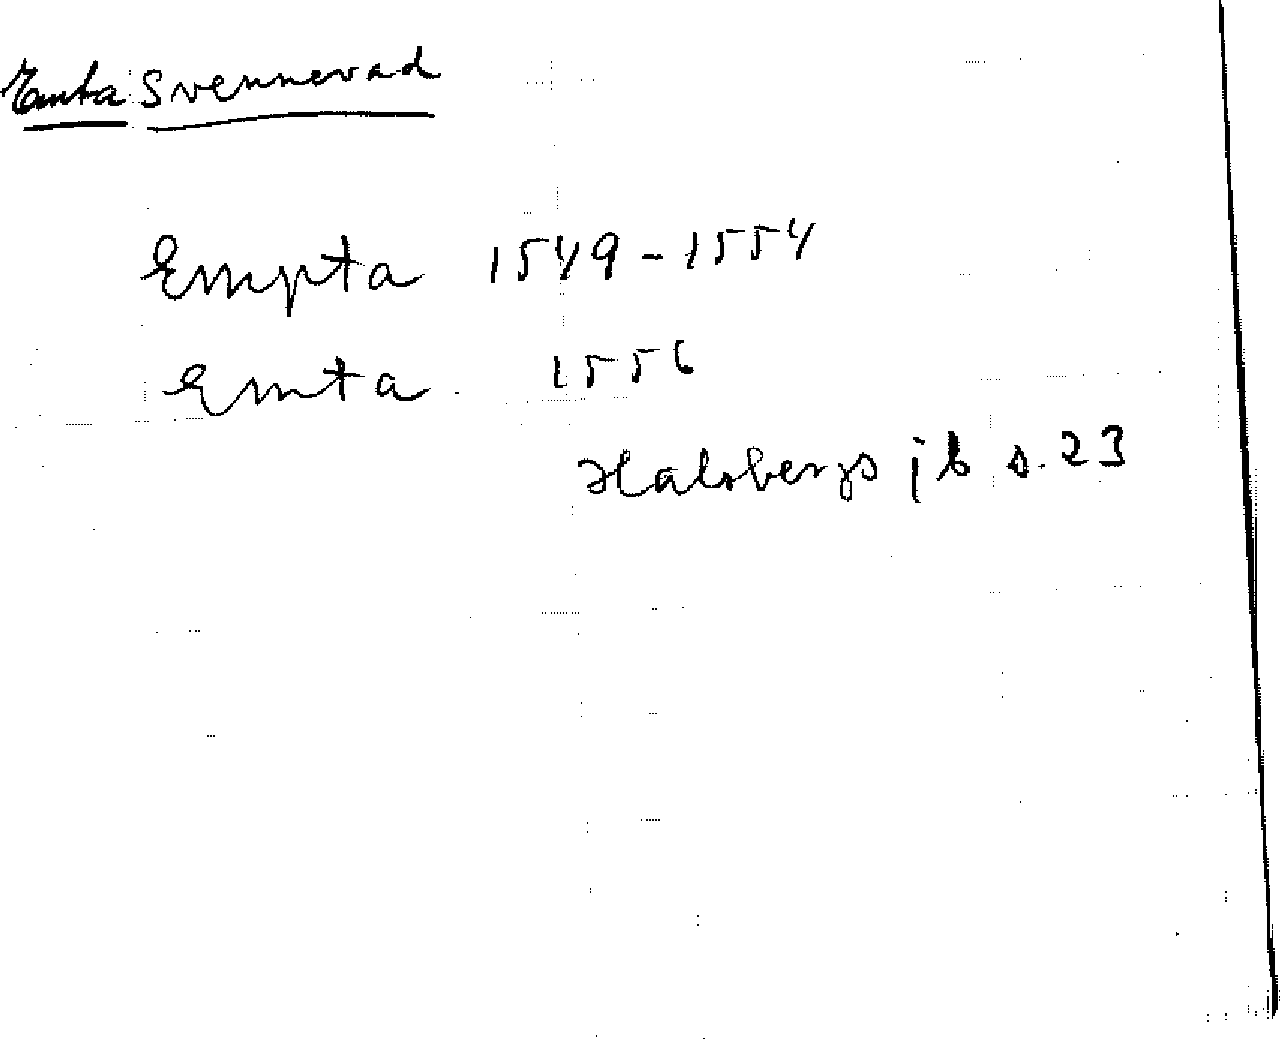 Emta Svennevad
Empta 1549-1554
Emta 1556
Halsbergs jb s. 23